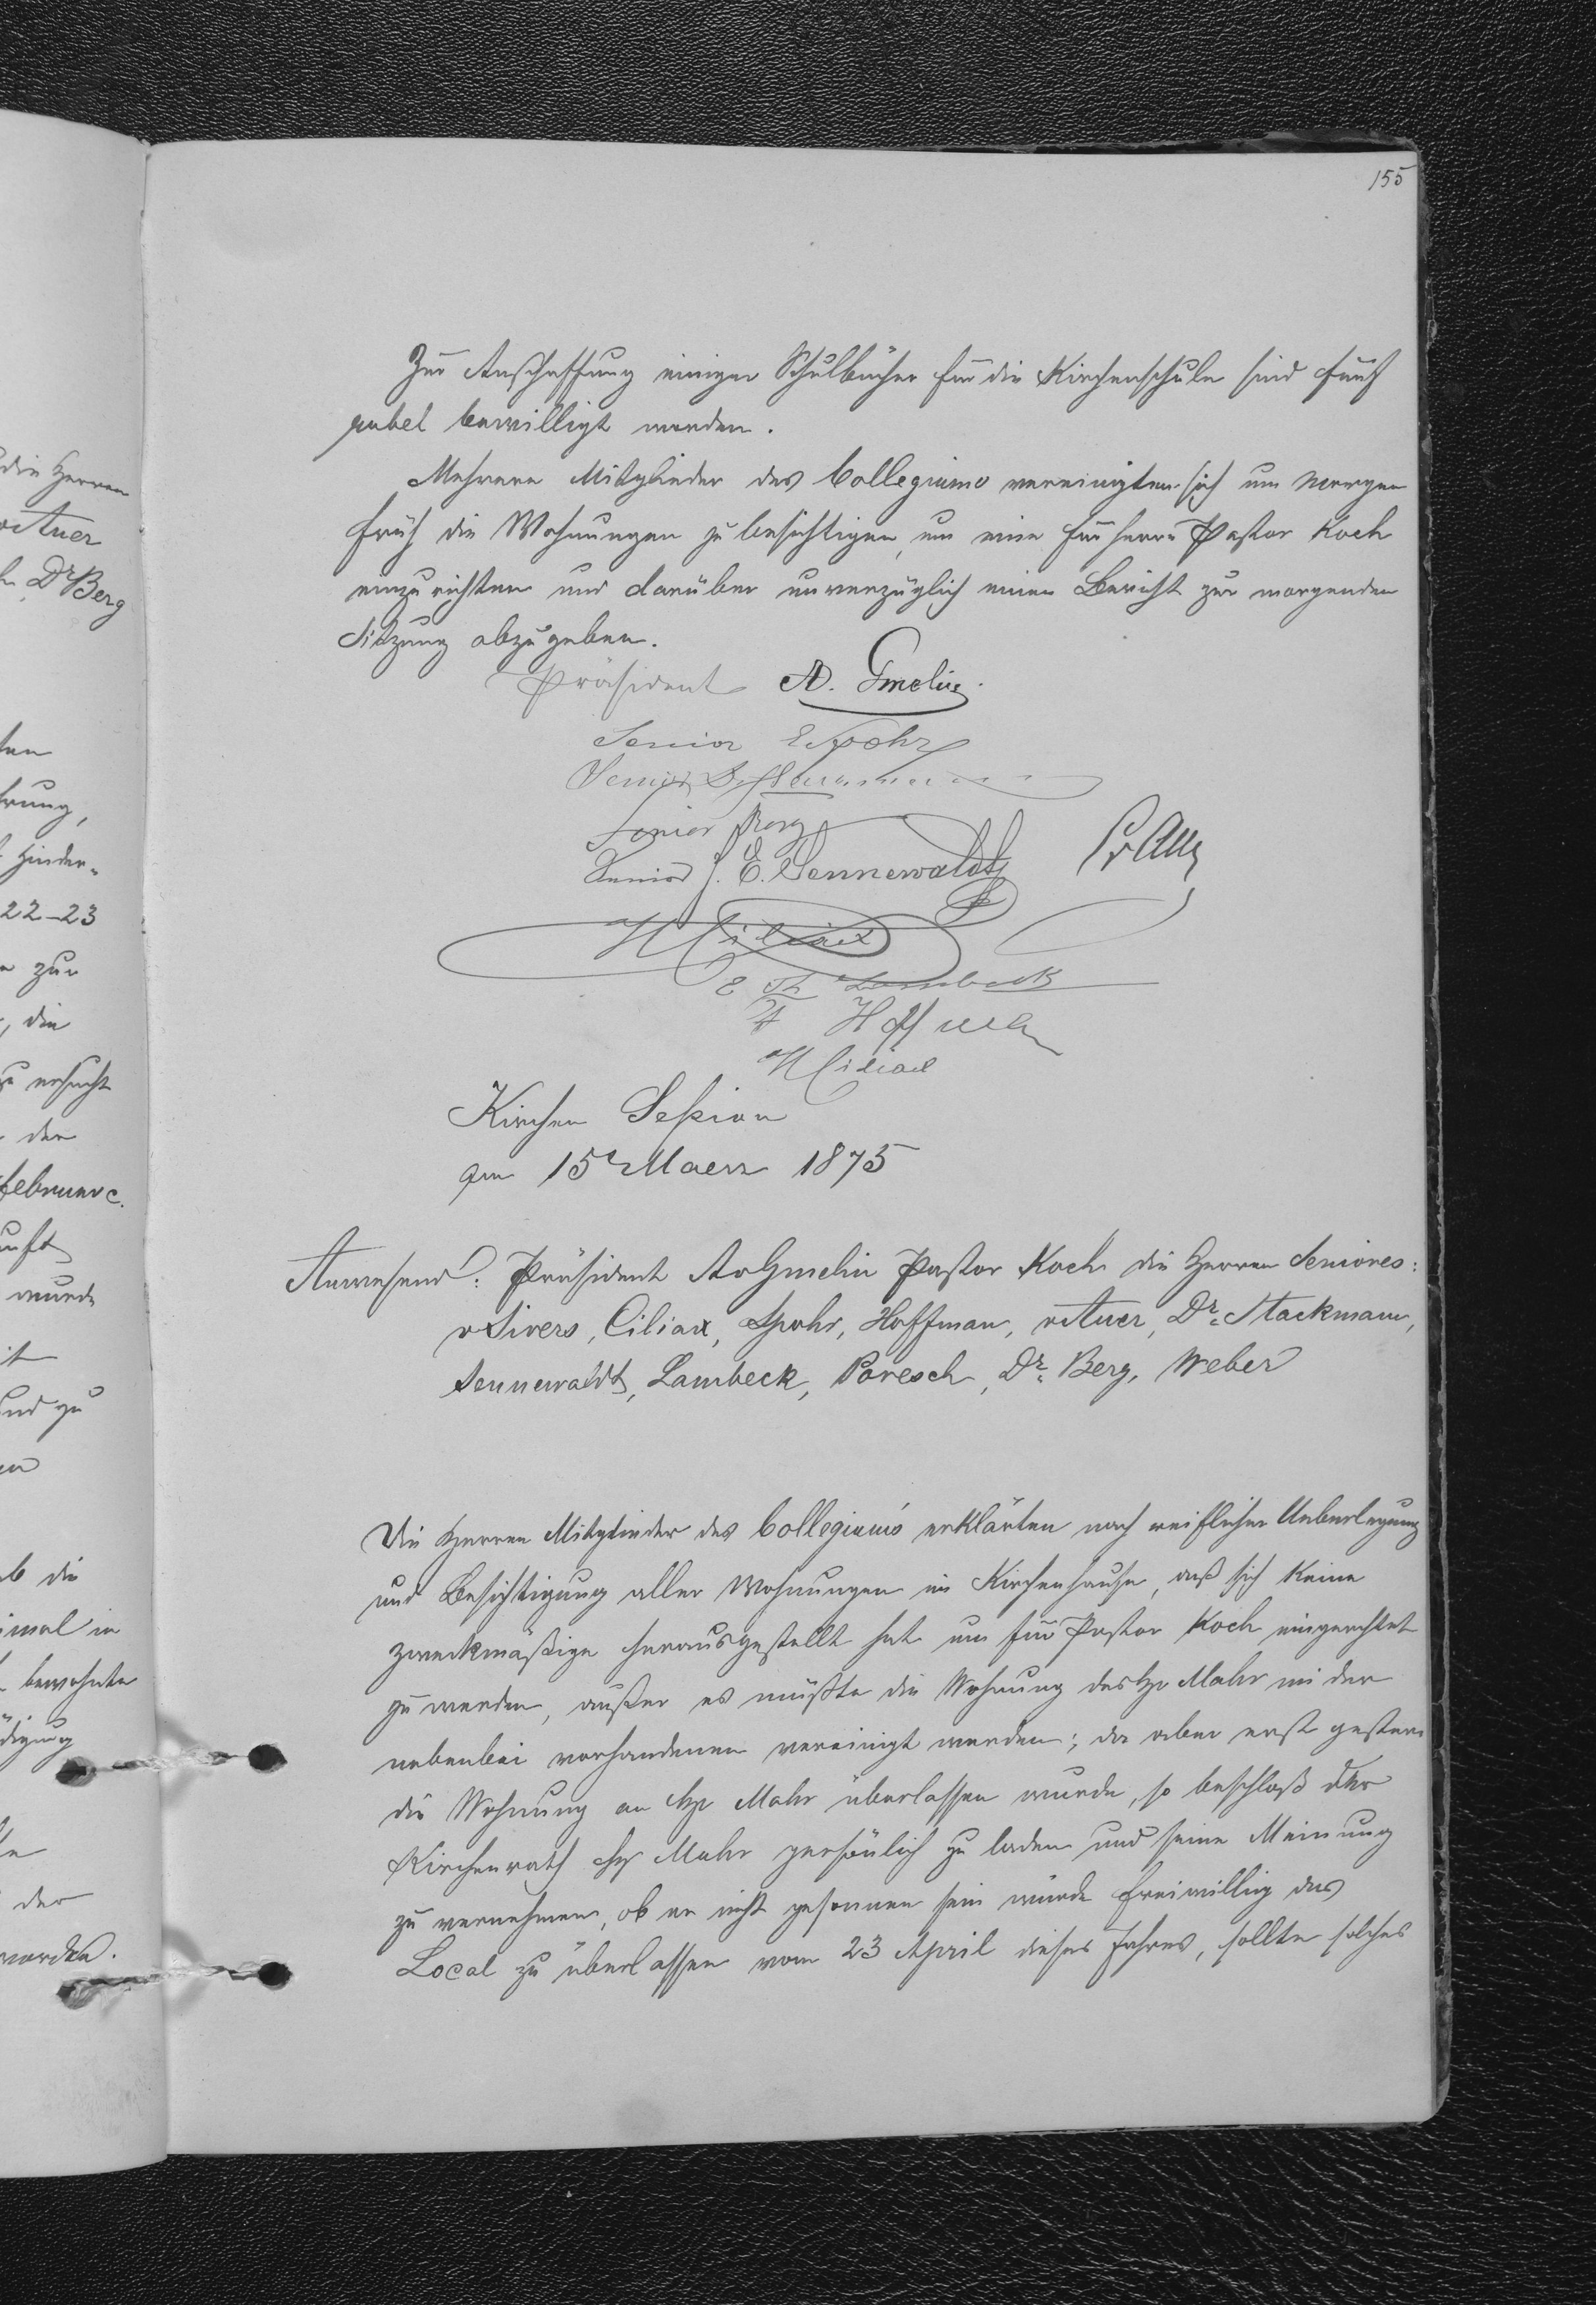 155
Zur Anschaffung einiger Schulbücher für die Kirchenschule sind fünf
rubel bewilligt worden.
Mehrere Mitglieder des Collegiums vereinigten sich um Morgen
früh die Wohnungen zu besichtigen, um eine für Herrn Pastor Koch
einzurichten und darüber unverzüglich einen Bericht zur morgenden
Sitzung abzugeben.
Präsident A. Gmelin.
Senior E Spohr
Senior
Senior Berg
Senior J. E. Sennewaldt
H Ciliax
E Th Lambeck
H Ciliax
Kirchen Seßion
am 15 Maerz 1875
Anwesend: Präsident AvGmelin Pastor Koch die Herren Seniores:
vSivers, Ciliax, Spohr, Hoffman, vAuer, Dr. Stackmann,
Sennewaldt, Lambeck, Poresch, Dr. Berg, Weber
Die Herren Mitglieder des Collegiums erklärten nach reiflicher Ueberlegung
und Besichtigung aller Wohnungen im Kirchenhause, daß sich Keine
zweckmäßige herausgestellt hat um für Pastor Koch eingerichtet
zu werden, außer es müßte die Wohnung des Hr Mahr mi der
nebenbei vorhandenen vereinigt werden; da aber erst gestern
die Wohnung an Hr Mahr überlassen wurde, so beschloß der
Kirchenrath Hr Mahr persönlich zu laden und seine Meinung
zu vernehmen, ob er nicht gesonnen sein würde freiwillig das
Local zu überlassen vom 23 April dieses Jahres, sollte solches
die Herren
vAuer
Dr Berg
22-23
zur
, die
zu ersucht
der
februar c.
wurde
und zu
ob die
bewohnte
der
worden.